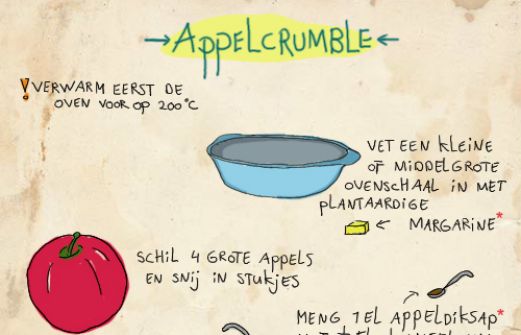 →APPELCRUMBLE←
! VERWARM EERST DE
OVEN VOOR OP 200°C
VET EEN KLEINE
OF MIDDELGROTE
OVENSCHAAL IN MET
PLANTAARDIGE
← MARGARINE*
SCHIL 4 GROTE APPELS
EN SNIJ IN STUKJES
MENG 1 EL APPELDIKSAP*